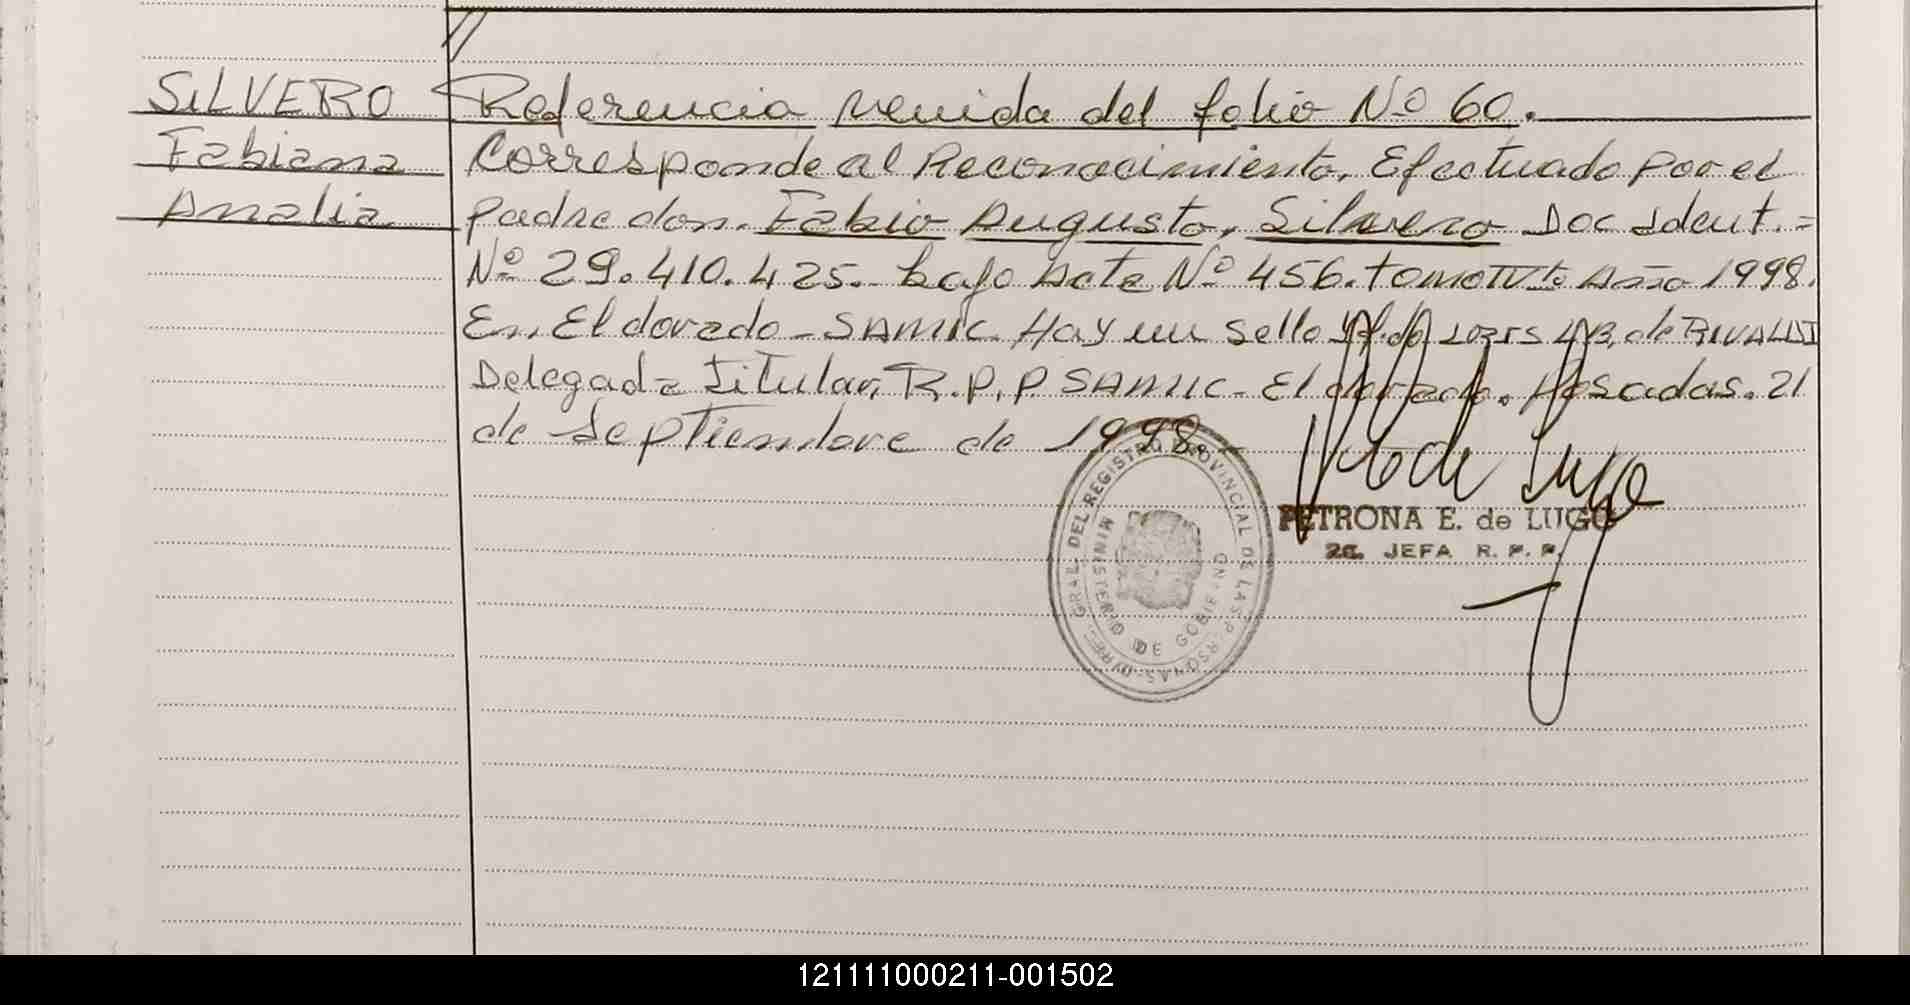 SILVERO
Fabiana
Analia
Referencia venida del folio Nº 60.
Corresponde al Reconocimiento, Efectuado Por el
padre don. Fabio Augusto, Silvero Doc Ident.=
Nº 29.410.425.- bajo Acta Nº 456. tomo IVto Año 1998.
En, El dorado - SAMIC. Hay un sello de RIVALDI
Delegada Titular, R.P.P. SAMIC - El dorado. Posadas. 21
de Septiembre de 1998.-
PETRONA E. de LUGO
2a. JEFA R. P. P.
DIREC. GRAL. DEL REGISTRO PROVINCIAL DE LAS PERSONAS
MINISTERIO DE GOBIERNO
121111000211-001502